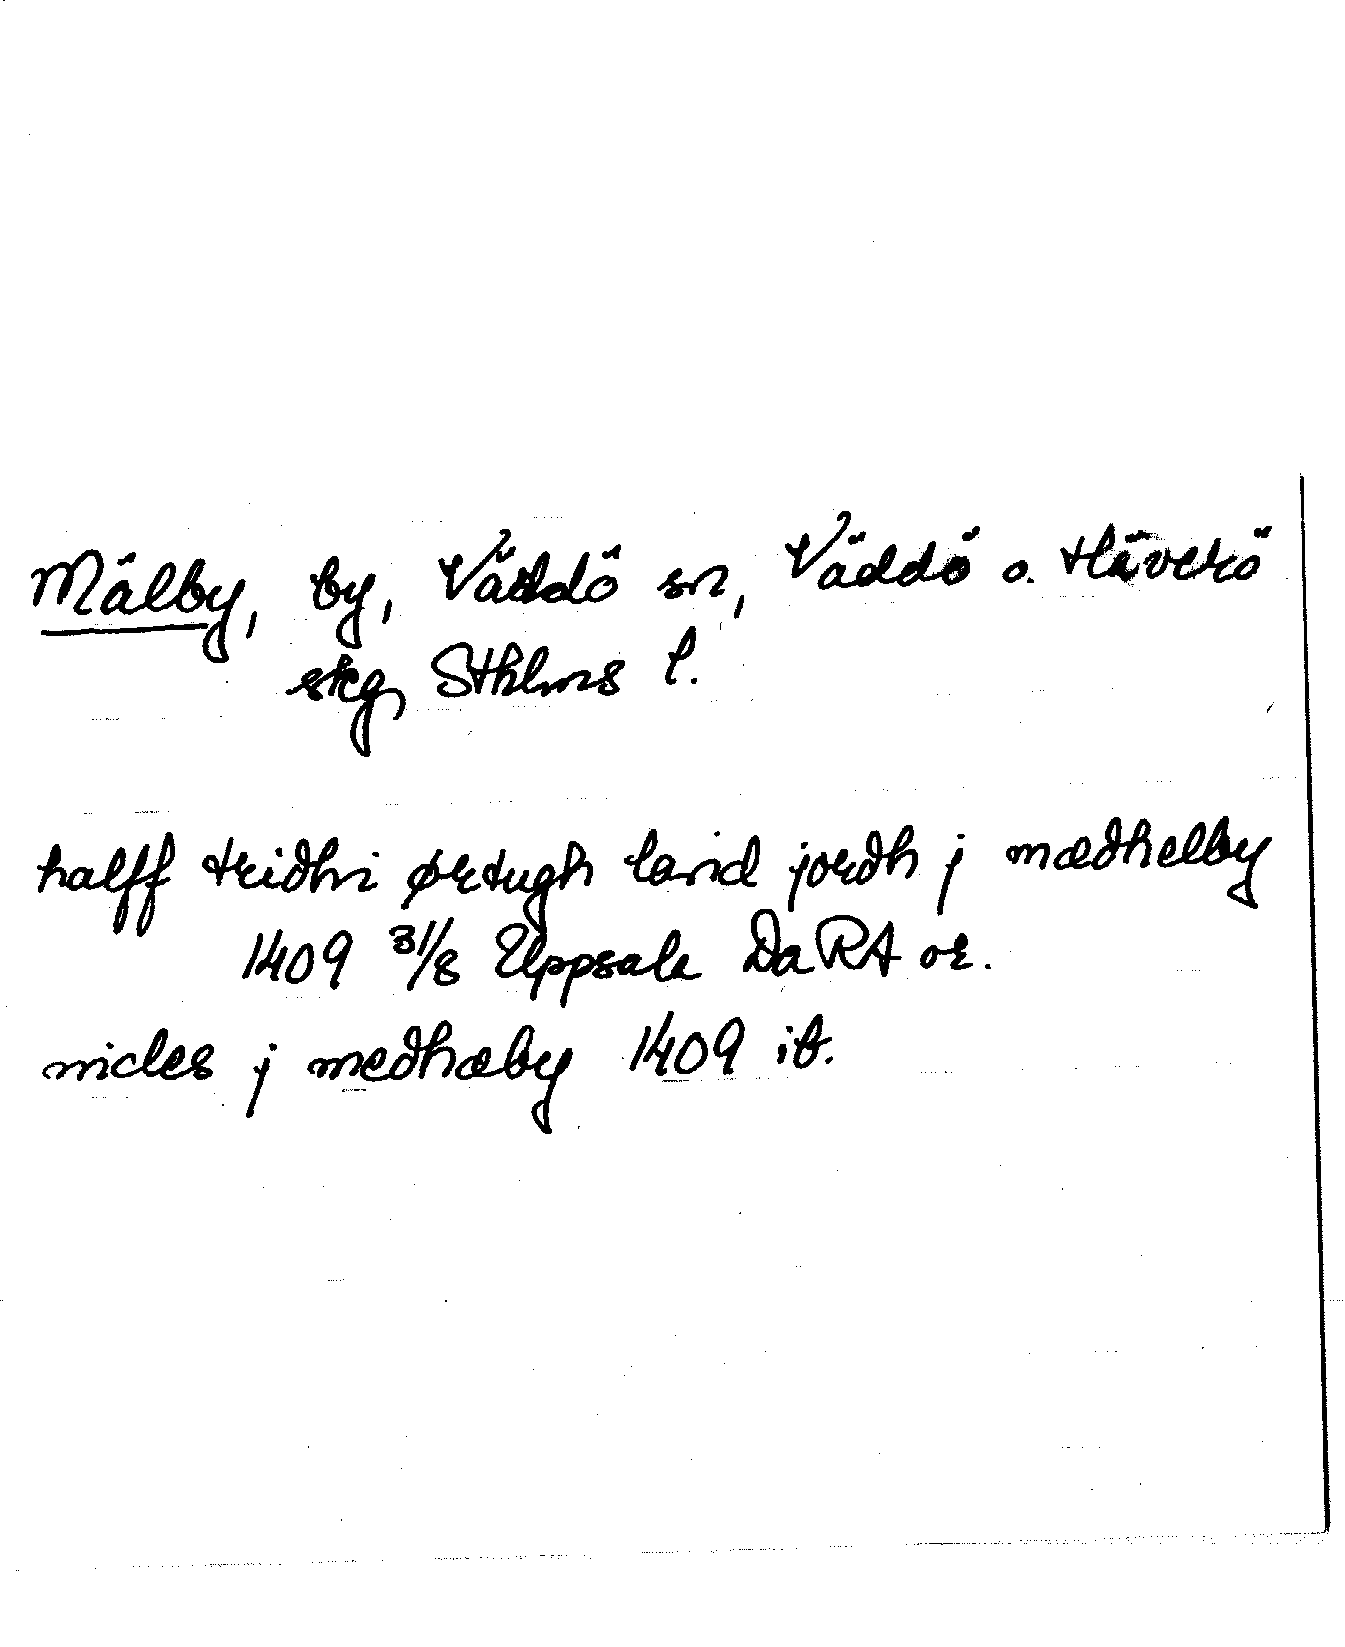 Mälby, by, Väddö sn, Väddö o. Häverö
skg, Sthlms l.
halff tridhi ørtugh land jordh j mædhelby
1409 31/8 Uppsala Da RA or.
nicles j medhæby 1409 ib.